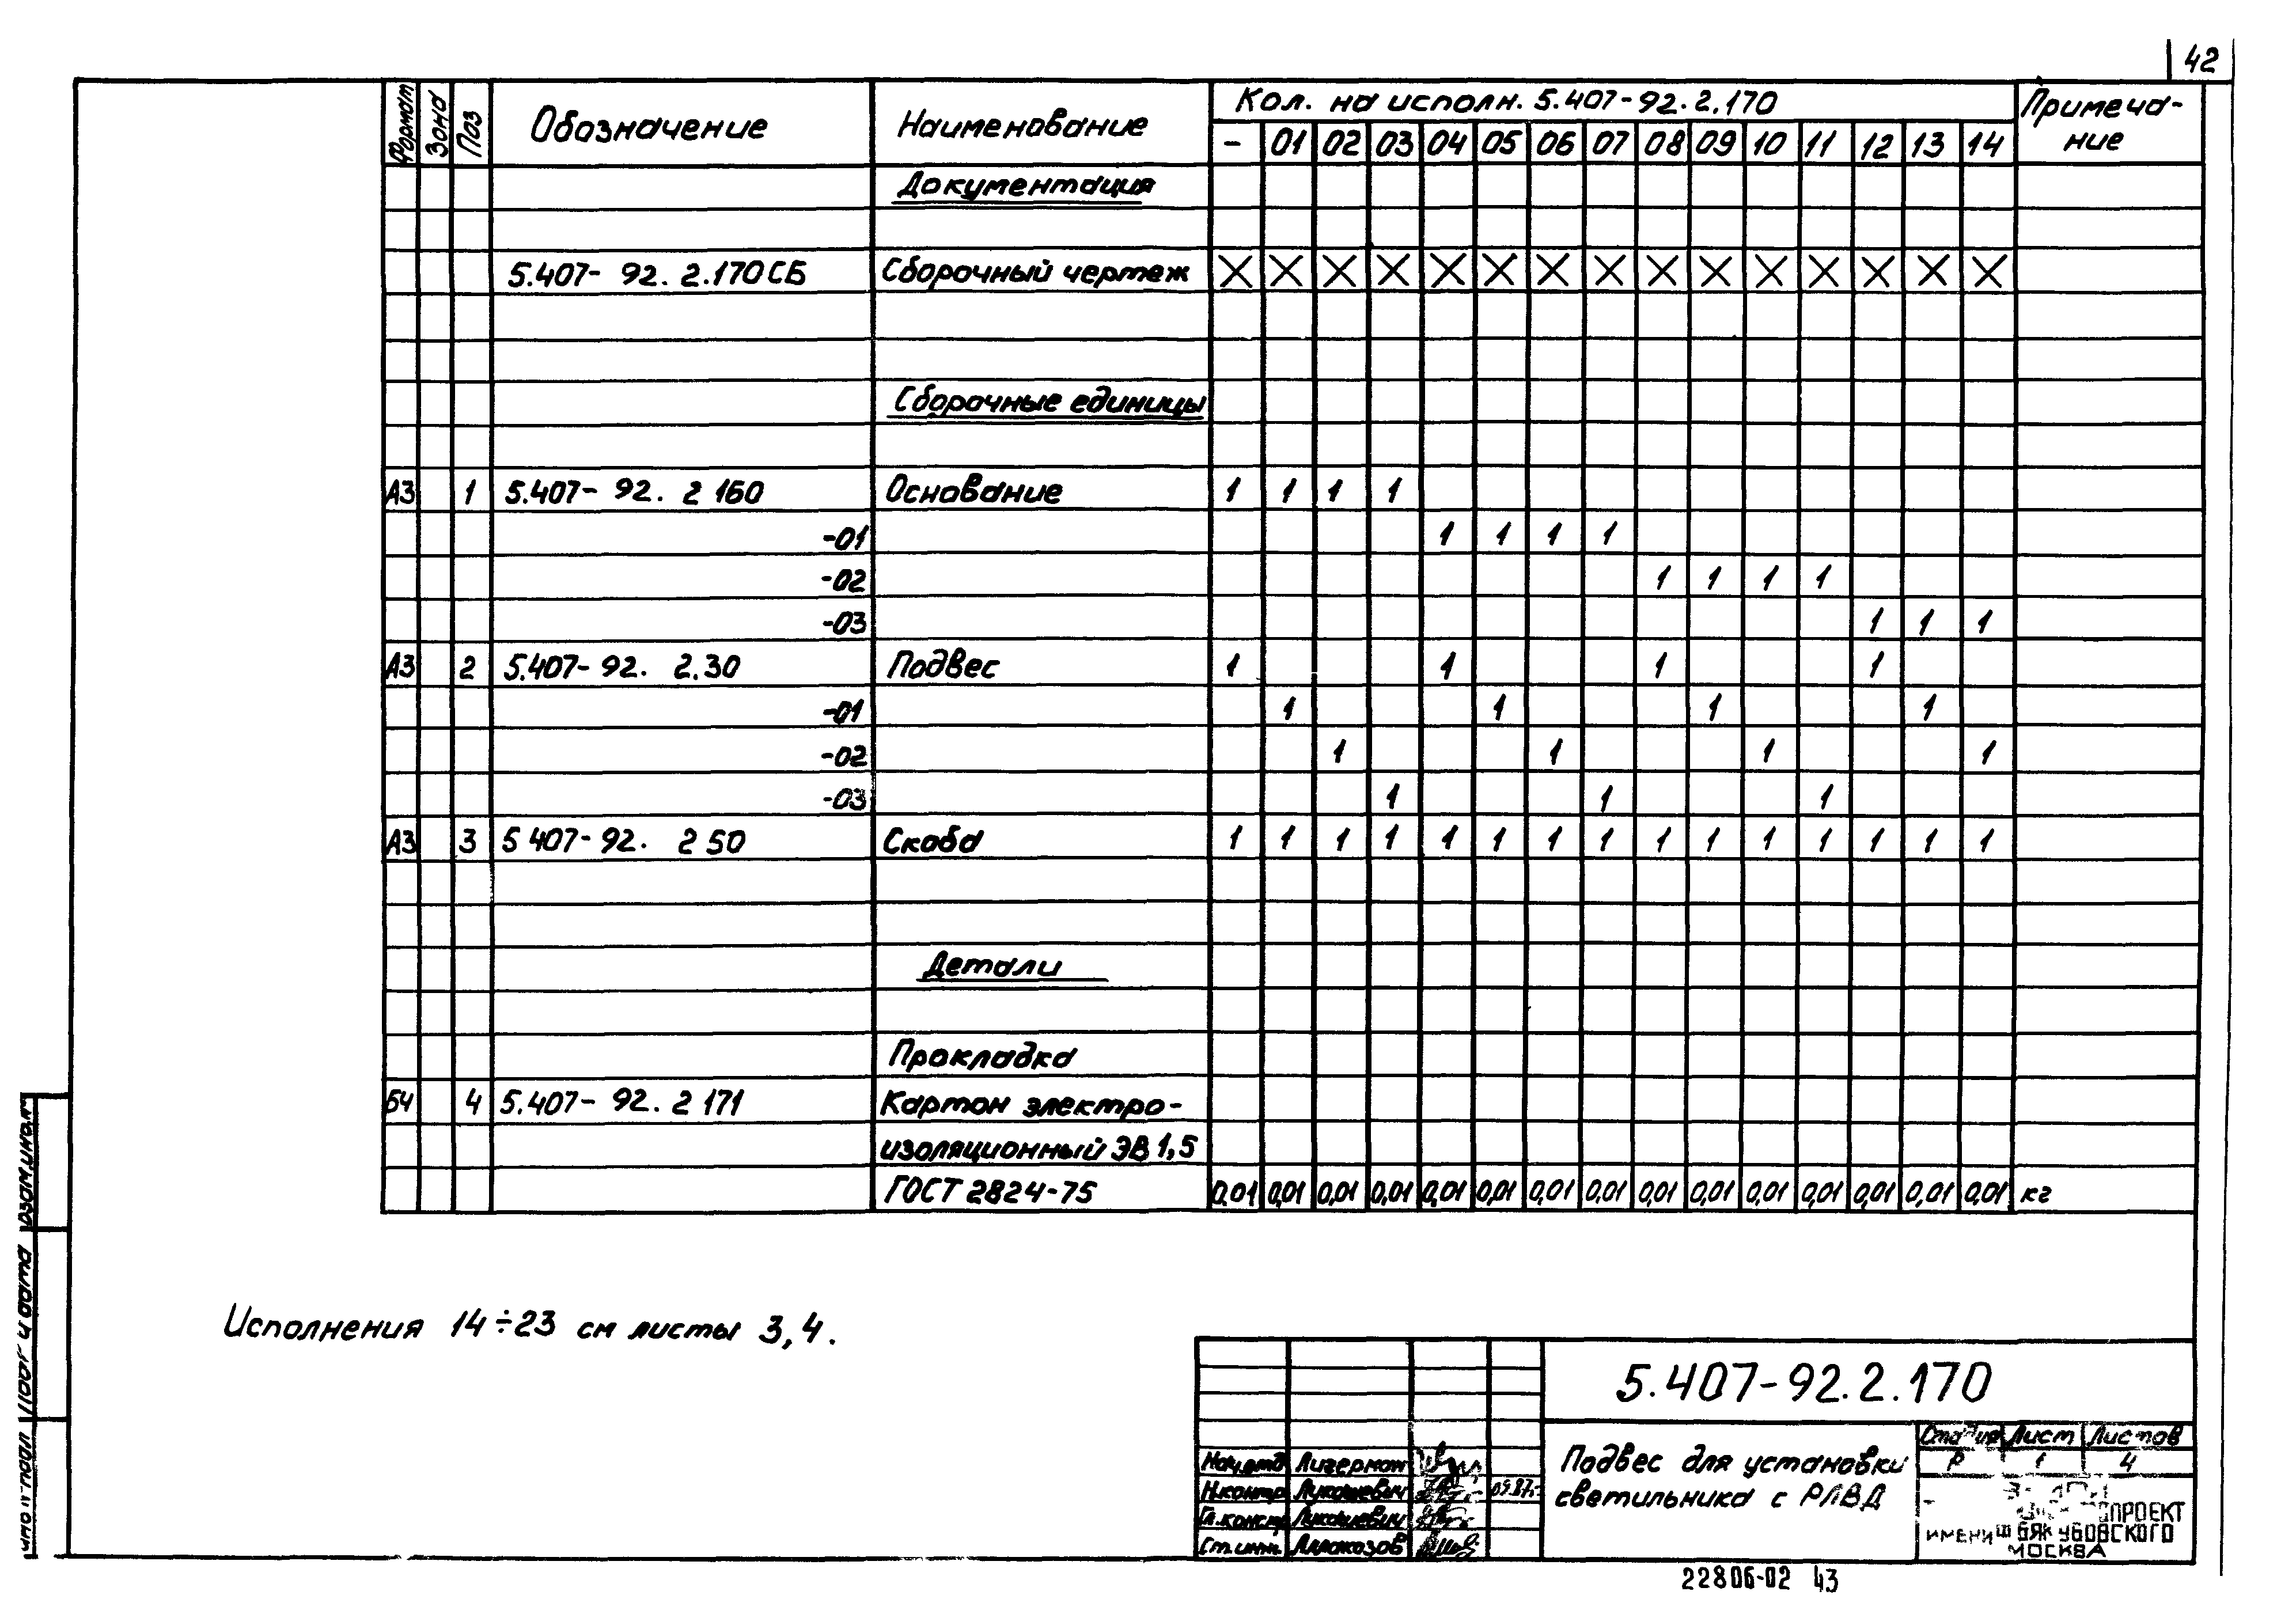 42
Формат Зона Поз Обозначение Наименование Кол. на исполн. 5.407-92.2.170 Примеча-
ние
- 01 02 03 04 05 06 07 08 09 10 11 12 13 14
Документация
5.407- 92. 2.170СБ Сборочный чертеж X X X X X X X X X X X X X X X
Сборочные единицы
А3 1 5.407- 92. 2 160 Основание 1 1 1 1
-01 1 1 1 1
-02 1 1 1 1
-03 1 1 1
А3 2 5.407- 92. 2.30 Подвес 1 1 1 1
-01 1 1 1 1
-02 1 1 1 1
-03 1 1 1
А3 3 5 407- 92. 2 50 Скоба 1 1 1 1 1 1 1 1 1 1 1 1 1 1 1
Детали
Прокладка
БЧ 4 5.407- 92. 2 171 Картон электро-
изоляционный ЭВ 1,5
ГОСТ 2824-75 0,01 0,01 0,01 0,01 0,01 0,01 0,01 0,01 0,01 0,01 0,01 0,01 0,01 0,01 0,01 кг
Исполнения 14÷23 см листы 3,4.
5.407-92.2.170
Подвес для установки
светильника с РЛВД
Стадия Лист Листов
Р 1 4
Нач.отд Лигерман
Н.контр Лукашевич 09.87
Гл.констр Лукашевич
Ст.инж.
ПРОЕКТ
ИМЕНИ
МОСКВА
22806-02 43